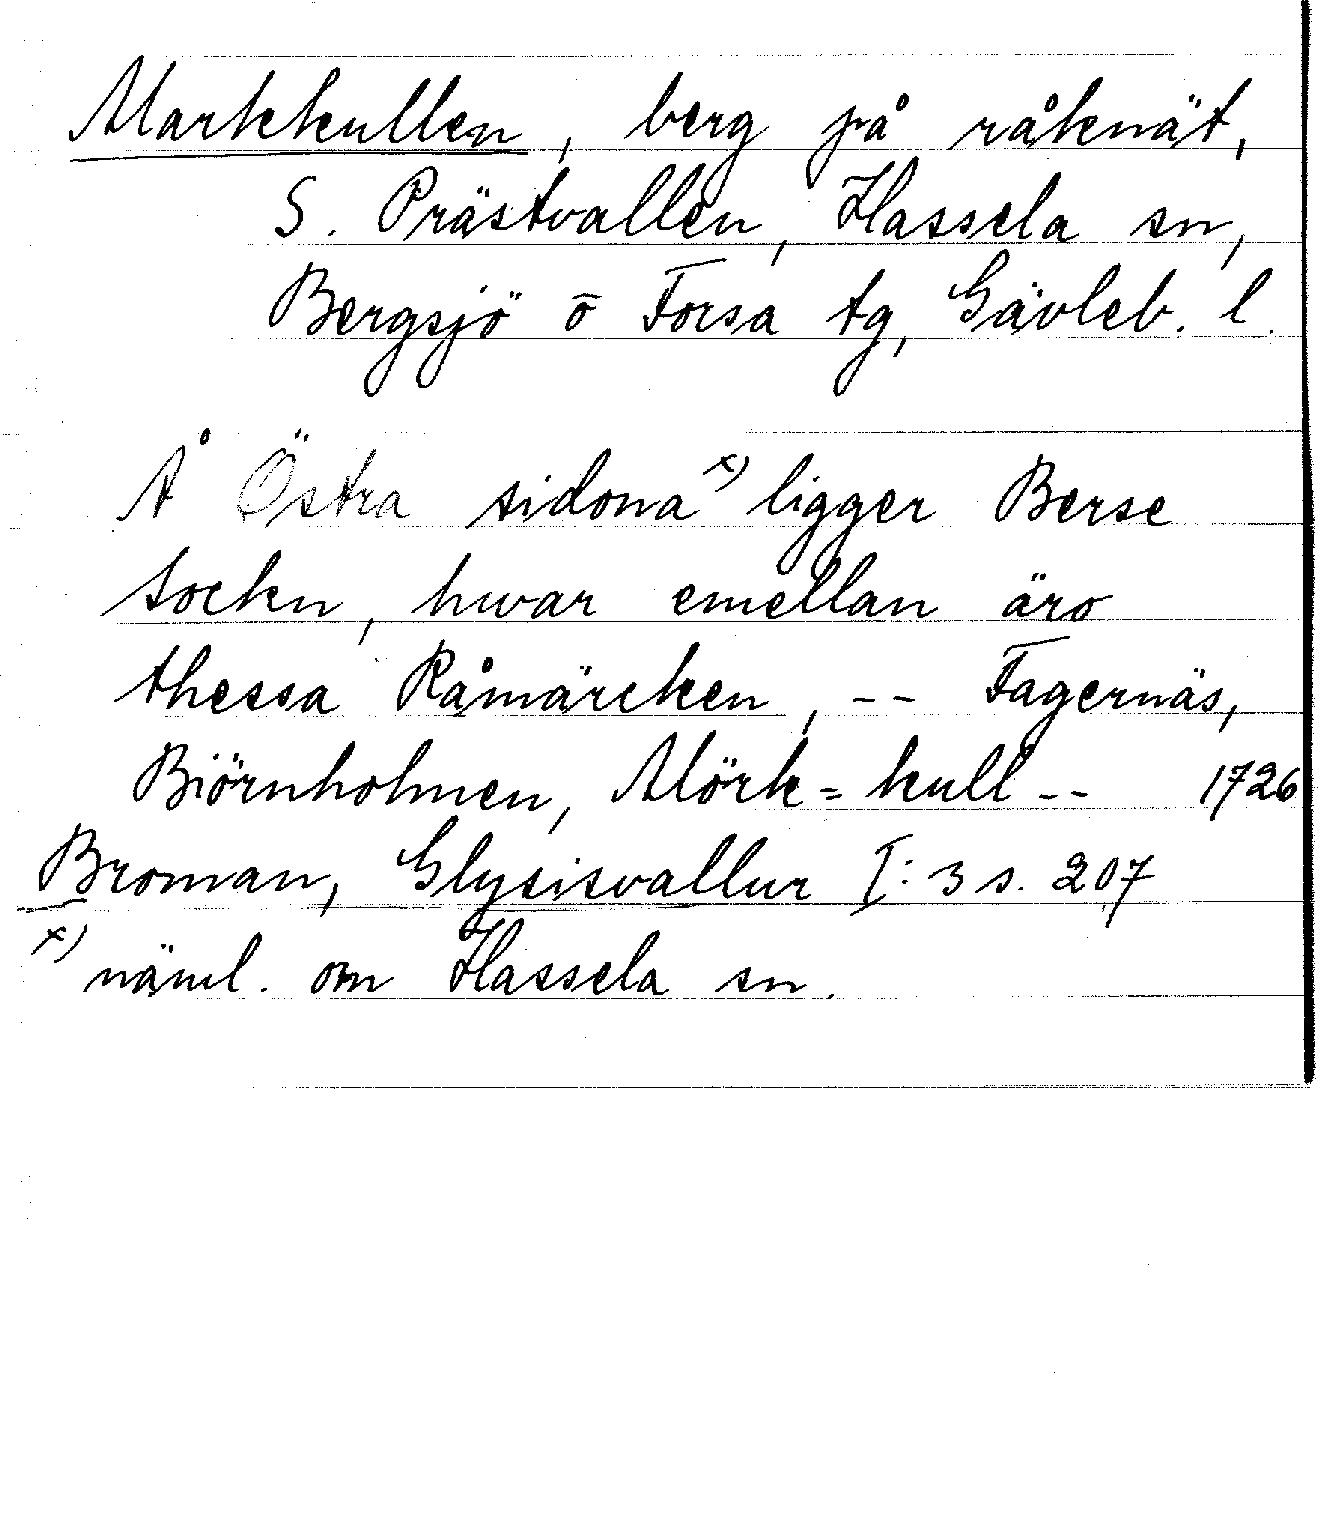 Markkullen, berg på råknät,
S. Prästvallen, Hassela sn,
Bergsjö o Forsa tg, Gävleb. l.
Å Östra sidona x) ligger Berse
sockn, hwar emellan äro
thessa Råmärcken, -- Fagernäs,
Biörnholmen, Mörk=kull -- 1726
Broman, Glysisvallur I: 3 s. 207
x) näml. om Hassela sn.